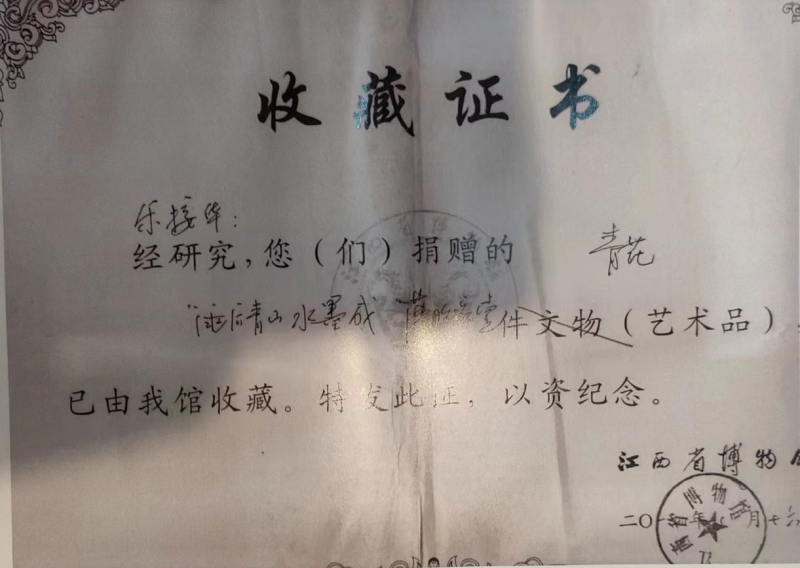 收藏证书
乐接华:
经研究,您(们)捐赠的 青花
"雨后青山水墨成" 件文物(艺术品),
已由我馆收藏。特发此证,以资纪念。
江西省博物
二〇一 年 月十六
西省博物